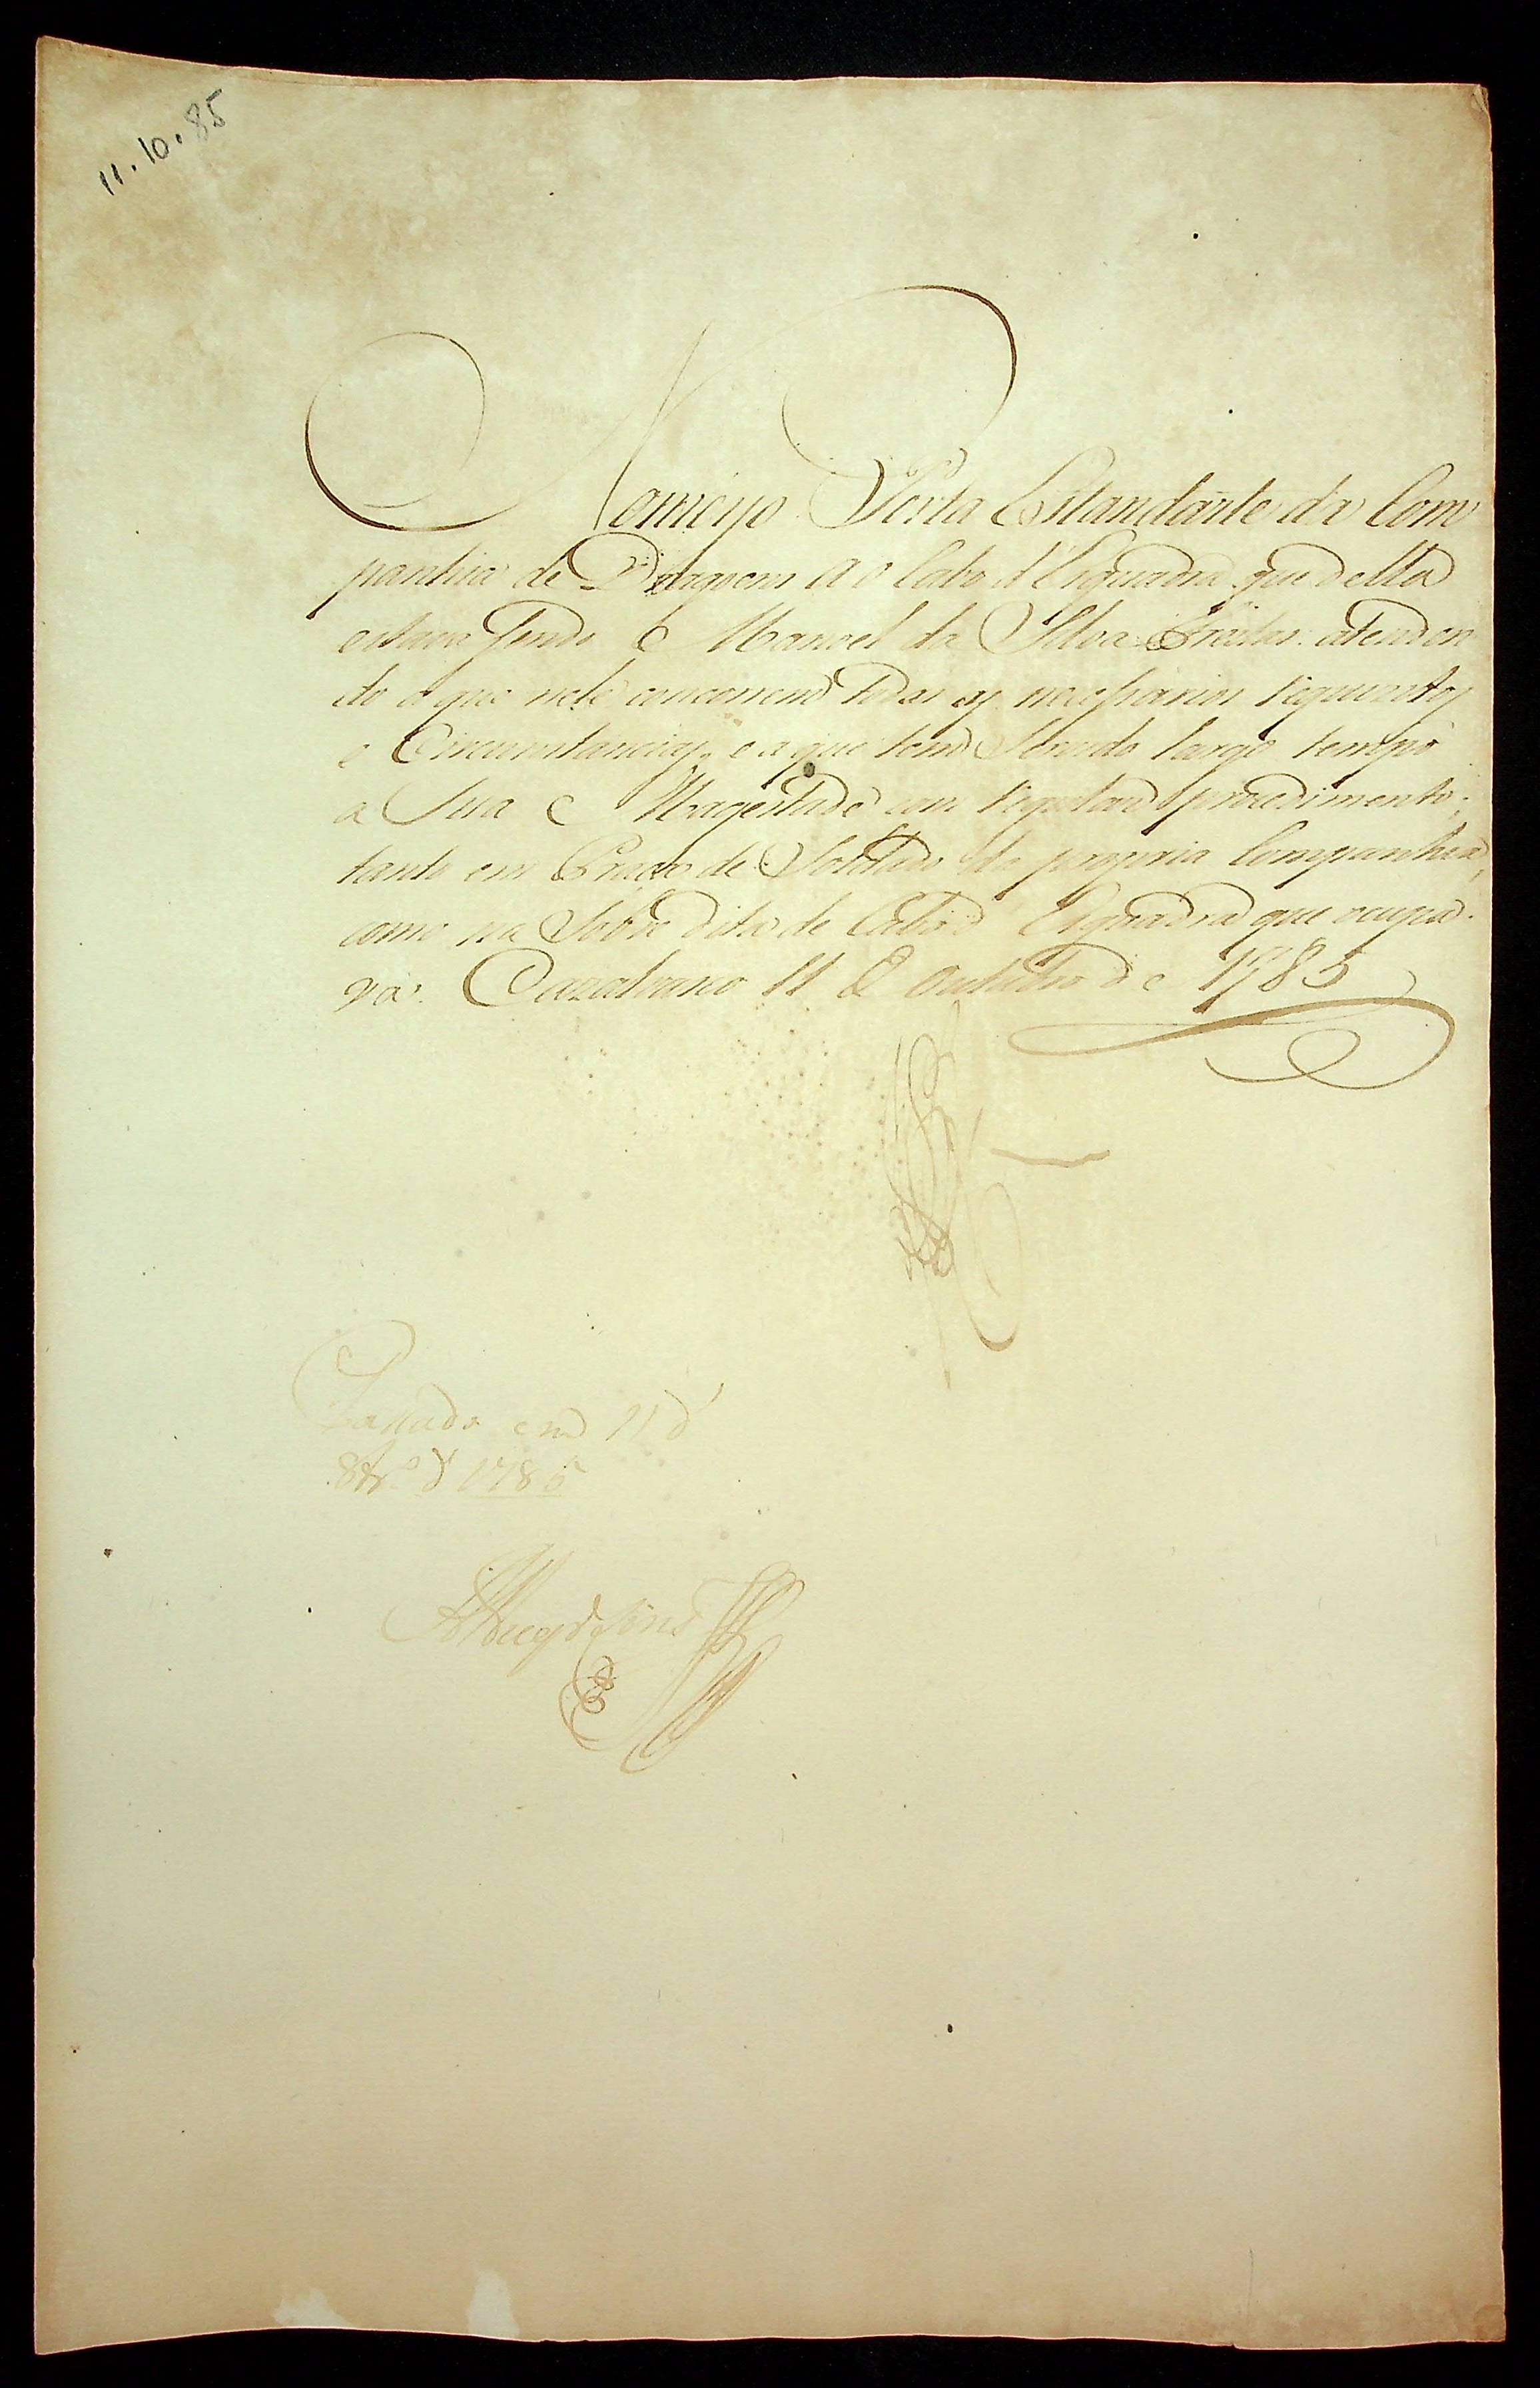 11.10.85
Nomeyo Porta Estandarte da Com
panhia de Dragoens ao Cabo d'Esquadra que della
estava sendo Manoel da Silva Freitas: atenden
do a que nele concorrem todos os necessarios requezitos
e Circunstancias, e a que tem servido largo tempo
a Sua Magestade com regular procedimento;
tanto em Praça de Soldado da propria Companhia,
como na Sobredita de Cabo d'Esquadra que ocupa-
va. Cazalvasco 11 de Outubro de 1785
em 11 d'
8br.º d 1785